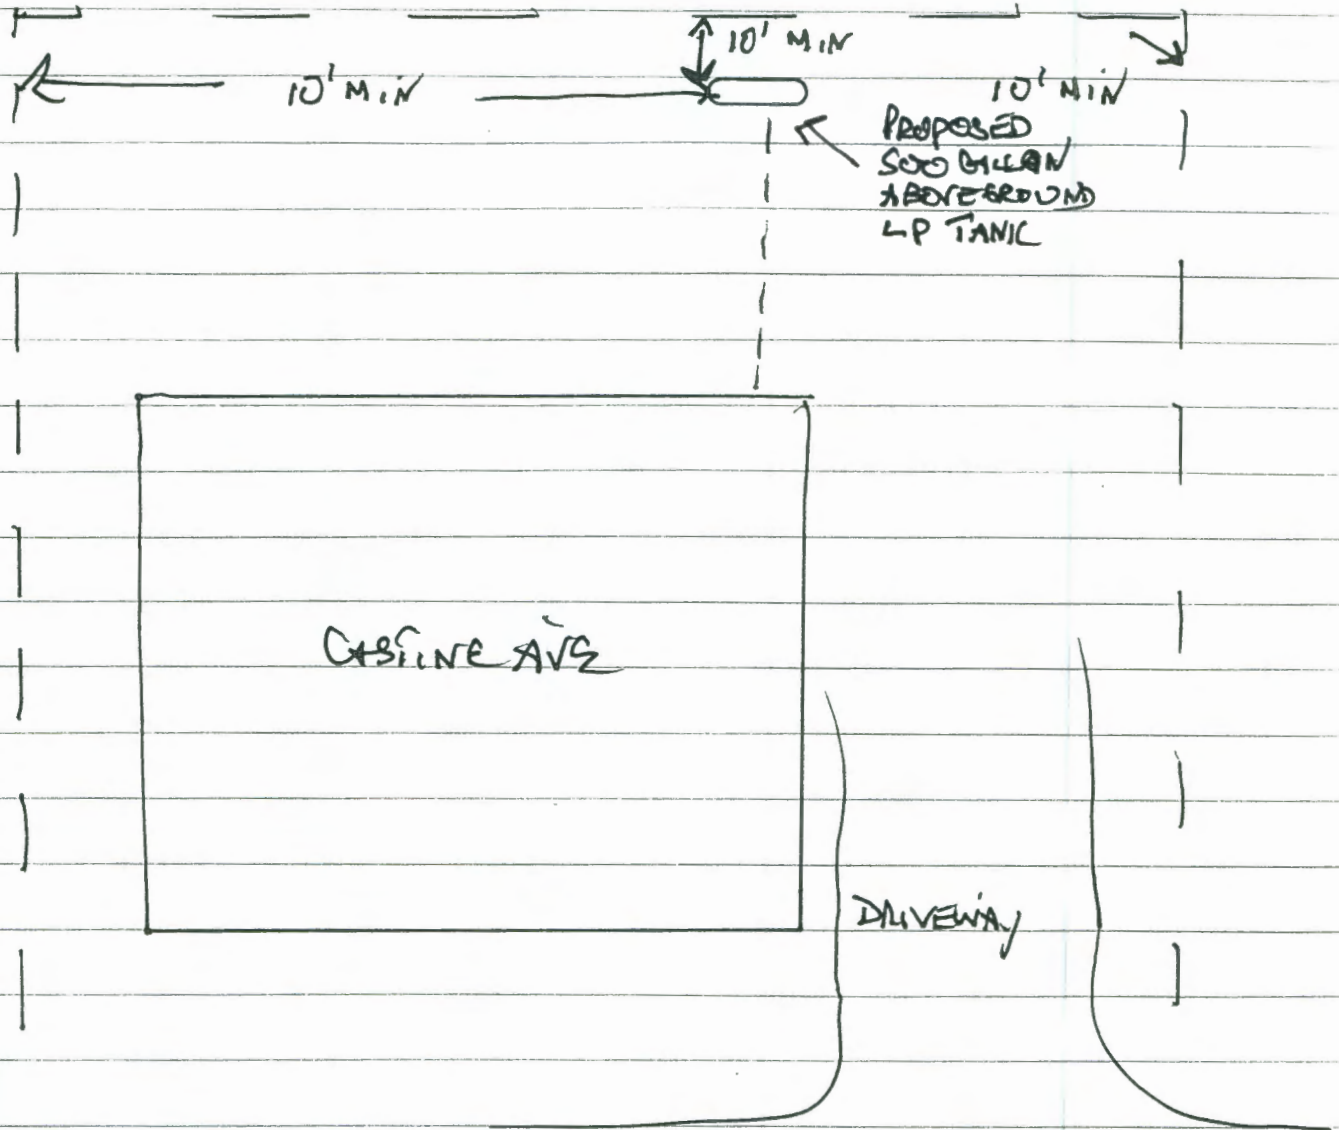 10' MIN
10' MIN
10' MIN
PROPOSED
500 GALLON
ABOVEGROUND
LP TANK
CASTINE AVE
DRIVEWAY